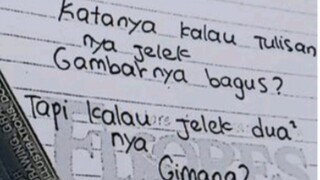 Katanya kalau Tulisan
nya jelek
Gambarnya bagus?
Tapi kalau jelek dua²
nya
Gimana?